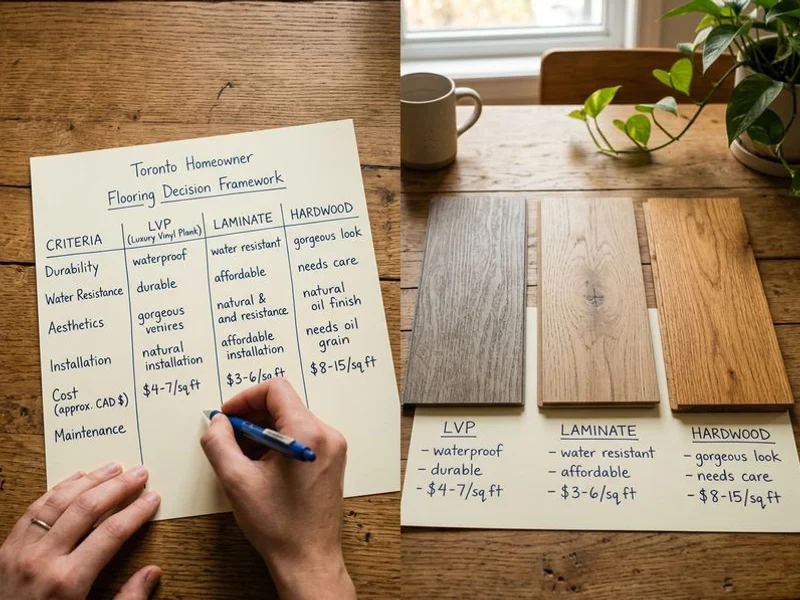 Toronto Homeowner
Flooring Decision Framework
CRITERIA
LVP
(Luxury Vinyl Plank)
LAMINATE
HARDWOOD
Durability
waterproof
water resistant
gorgeous look
Water Resistance
durable
affordable
needs care
Aesthetics
gorgeous
venires
natural &
and resistance
natural
oil finish
Installation
natural
installation
affordable
installation
needs oil
grain
Cost
(approx. CAD $)
$4-7/sqft
$3-6/sqft
$8-15/sqft
Maintenance
LVP
- waterproof
- durable
- $4-7/sqft
LAMINATE
- water resistant
- affordable
- $3-6/sqft
HARDWOOD
- gorgeous look
- needs care
- $8-15/sqft